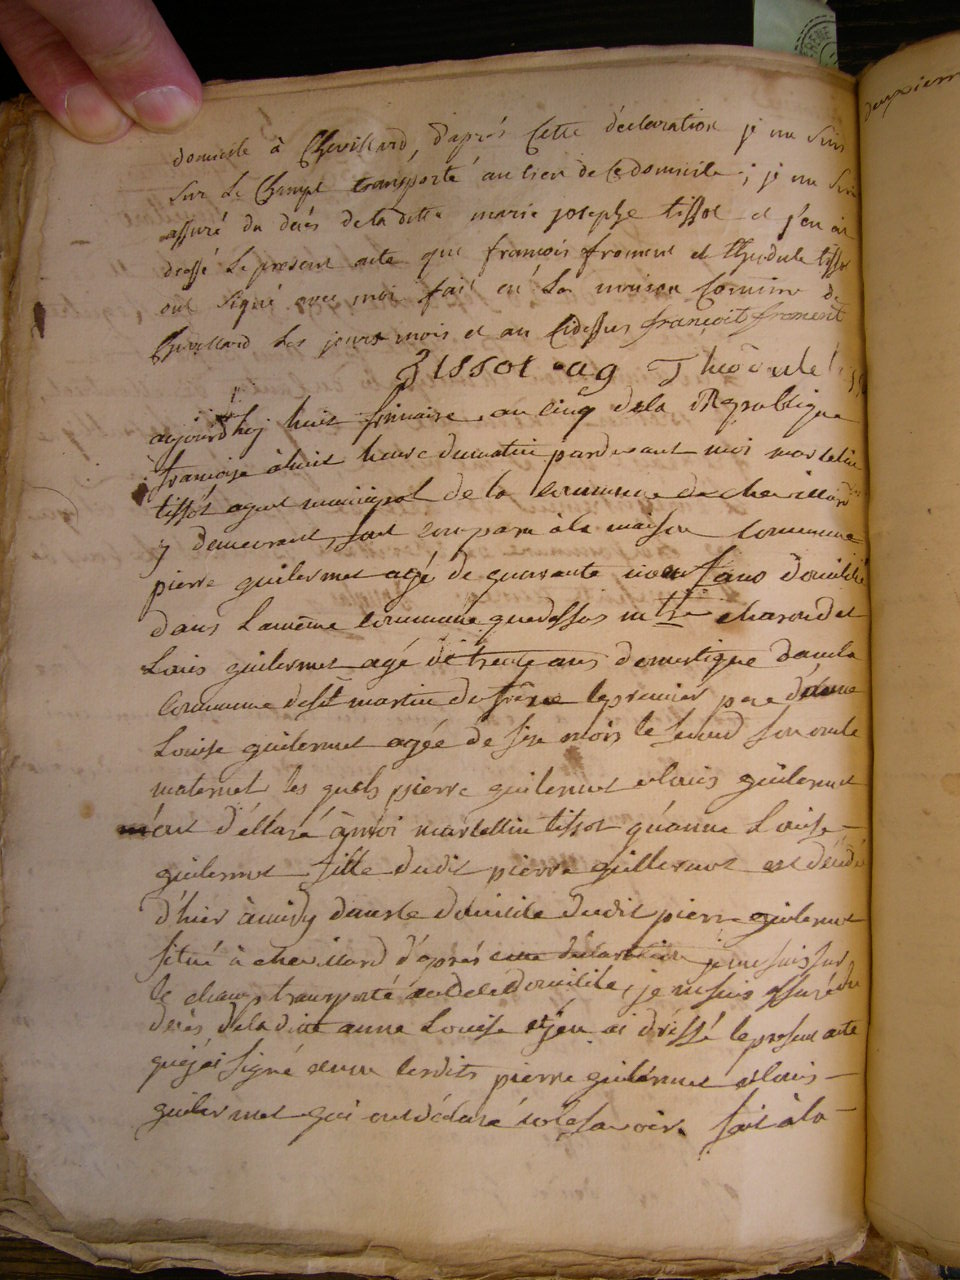 domicile à Chevillard, d'aprés Cette déclaration je me suis
sur Le Champt transporté au lieu de Ce domicile ; je me suis
assuré du décés de la ditte marie josephe tissot et j'en ai
dressé Le present acte que francois froment et Theodule tissot
ont signé avec moi fait en La maison Commune de
Chevillard Les jours mois et an Cidessus françoit froment
Tissot ag Theodule
aujourdhuy huit frimaire an cinq de la Republique
francoise à huit heure du matin pardevant moi marcelin
tissot agent municipal de la commune de chevillard
y demeurant, sont comparu à la maison commune
pierre guilermet agé de quarante neuf ans domicilié
dans La même commune que dessus charon et
Louis guilermet agé de trente ans domestique dans la
commune de st martin du frêne le premier pere d'anne
Louise guilermet agée de six mois le second son oncle
maternel les quels pierre guilermet et louis guilermet
m'ont déllaré à moi marcellin tissot qu'anne Louise
guilermet fille dudit pierre guillermet est décédé
d'hier à midy dans le domicile dudit pierre guilermet
situé à chevillard d'aprés cette déclaration je me suis sur
le champ transporté au de ce domicile, je me suis assuré du
décés de la ditte anne Louise et j'en ai dréssé le present acte
que j'ai signé lesdits pierre guilermet et louis
guilermet qui ont déclaré ne le savoir. fait à la